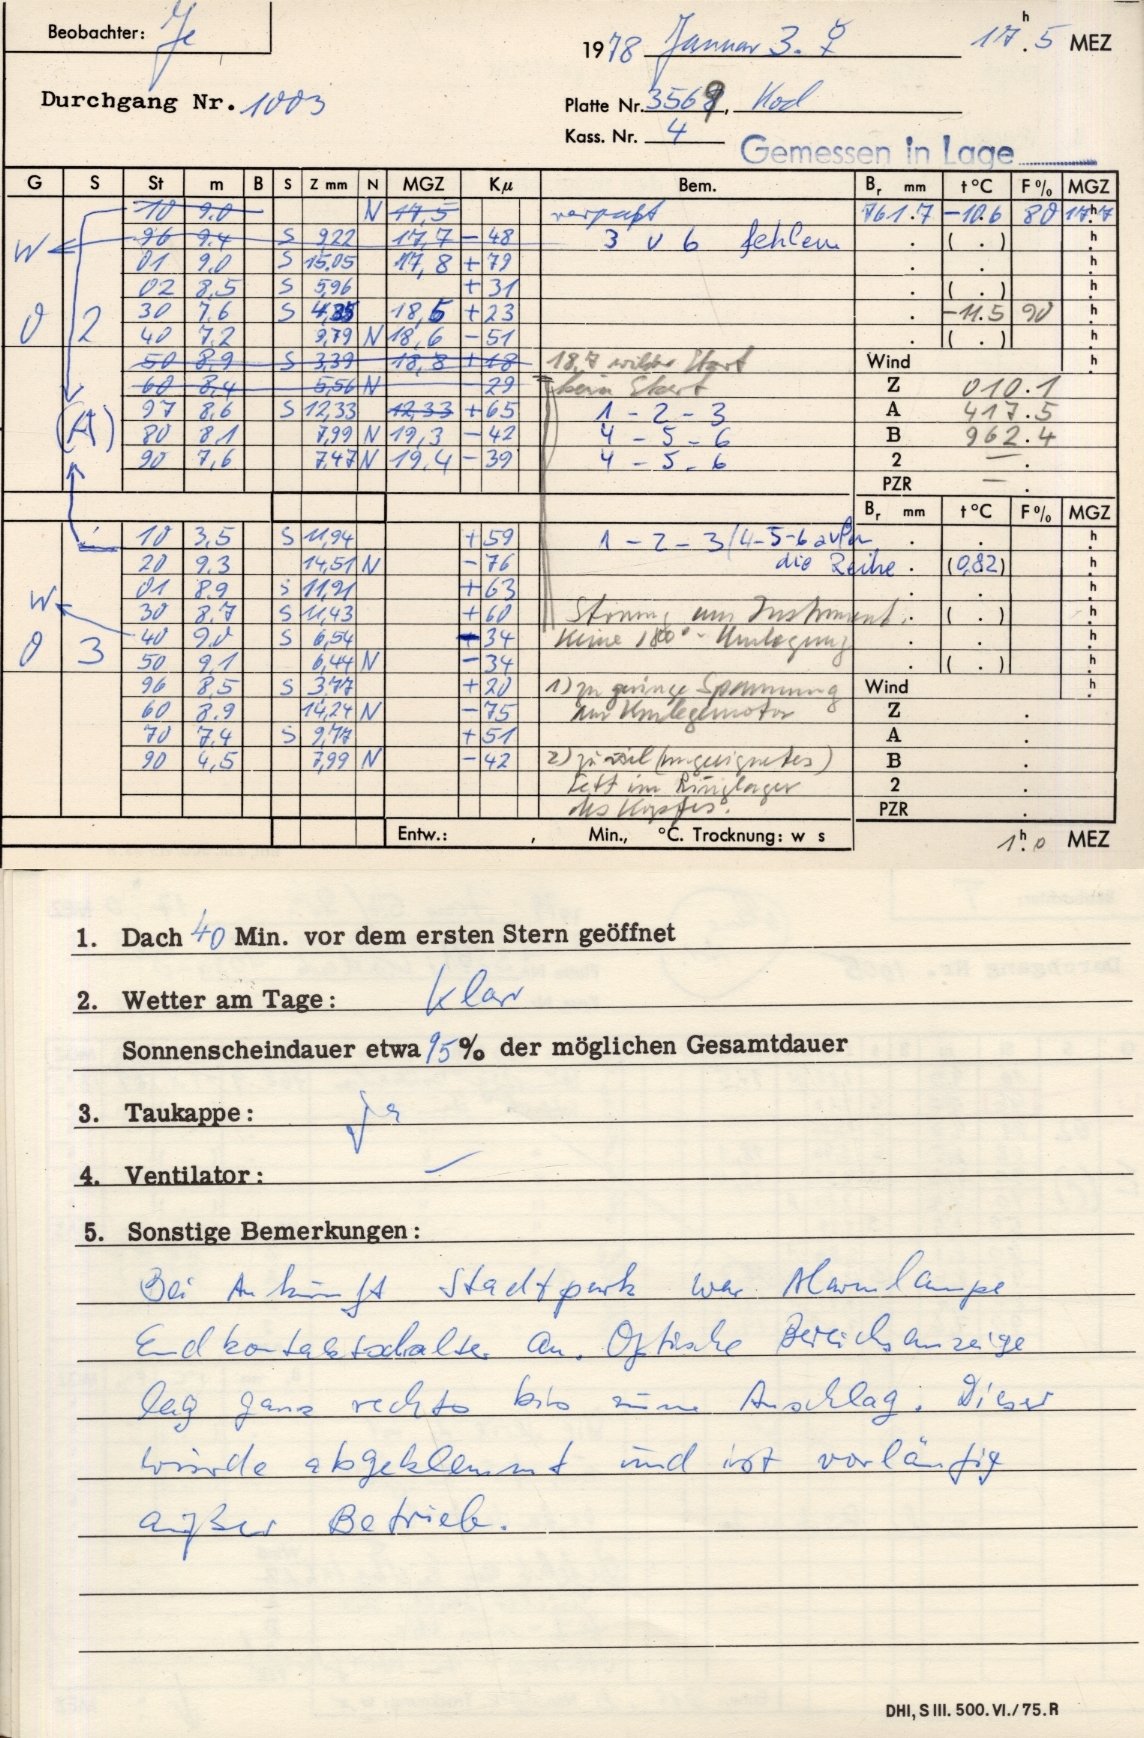 Beobachter: Je
1978 Januar 3. ☿ 17h.5 MEZ
Durchgang Nr. 1003
Platte Nr. 3569, Kod
Kass. Nr. 4
Gemessen in Lage
G S St m B S Z mm N MGZ Kμ Bem. Br mm t °C F % MGZ
10 9.0 N 17,5 verpaßt 761.7 -10.6 80 17h.7
W 96 9.4 S 9,22 17,7 - 48 3 u 6 fehlen . ( . ) h
01 9,0 S 15,05 17,8 + 79 . . h
02 8,5 S 5,96 + 31 . ( . ) h
0 2 30 7,6 S 4,35 18,5 + 23 . -11.5 90 h
40 7,2 9,79 N 18,6 - 51 . ( . ) h
50 8,9 S 3,39 18,8 + 18 18,7 wilder Start Wind h
60 8,4 5,56 N - 29 kein Start Z 010.1
(A) 97 8,6 S 12,33 12,33 + 65 1 - 2 - 3 A 417.5
80 8,1 7,99 N 19,3 - 42 4 - 5 - 6 B 962.4
90 7,6 7,47 N 19,4 - 39 4 - 5 - 6 2 — .
PZR — .
Br mm t °C F % MGZ
10 3,5 S 11,94 + 59 1 - 2 - 3 / 4-5-6 außer . . h
20 9.3 14,51 N - 76 die Reihe . (0,82) h
01 8,9 S 11,91 + 63 . . h
W 30 8,7 S 11,43 + 60 Störung am Instrument. . ( . ) h
40 9,0 S 6,54 + 34 Keine 180°-Umlegung . . h
0 3 50 9,1 6,44 N - 34 . ( . ) h
96 8,5 S 3,77 + 20 1) zu geringe Spannung Wind h
60 8.9 14,24 N - 75 am Umlegemotor Z .
70 7,4 S 9,77 + 51 A .
90 4,5 7,99 N - 42 2) zu viel (ungeeignetes) B .
Fett im Ringlager 2 .
des Kopfes. PZR .
Entw.: , Min., °C. Trocknung: w s 1h.0 MEZ
1. Dach 40 Min. vor dem ersten Stern geöffnet
2. Wetter am Tage: klar
Sonnenscheindauer etwa 95 % der möglichen Gesamtdauer
3. Taukappe: ja
4. Ventilator: —
5. Sonstige Bemerkungen:
Bei Ankunft Stadtpark war Alarmlampe
Endkontaktschalter an. Optische Bereichsanzeige
lag ganz rechts bis zum Anschlag. Dieser
wurde abgeklemmt und ist vorläufig
außer Betrieb.
DHI, S III. 500. VI. / 75. R